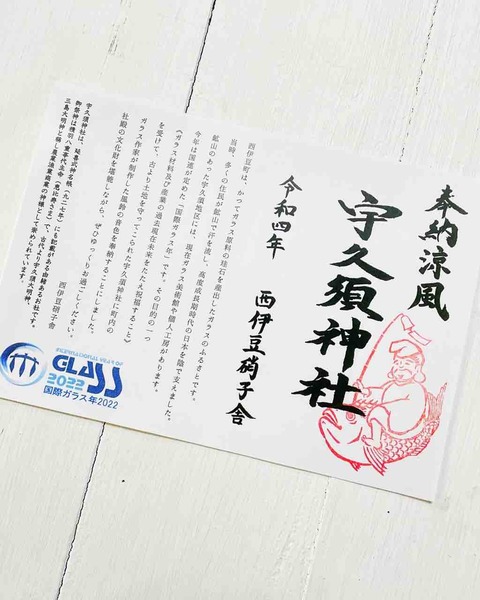 奉納涼風
宇久須神社
令和四年　西伊豆硝子舎
西伊豆町は、かつてガラス原料の珪石を産出したガラスのふるさとです。
当時、多くの住民が鉱山で汗を流し、高度成長期時代の日本を陰で支えました。
鉱山のあった宇久須地区には、現在ガラス美術館や個人工房があります。
今年は国連が定めた「国際ガラス年」です。その目的の一つ
（ガラス材料及び産業の過去現在未来をたたえ祝福すること）
を受けて、古より土地を守ってこられた宇久須神社に町内の
ガラス作家が制作した風鈴の音色を奉納することにしました。
社殿の文化財を堪能しながら、ぜひゆっくりお過ごしください。
西伊豆硝子舎
宇久須神社は、延喜式神名帳（九二七年）にも記載がある由緒あるお社です。
御祭神は積羽八重事代主命（恵比寿さま）で、古代より宇久須大明神、
三島大明神と称し農業漁業商業の神様として崇められています。
INTERNATIONAL YEAR OF
GLASS
2022
国際ガラス年2022